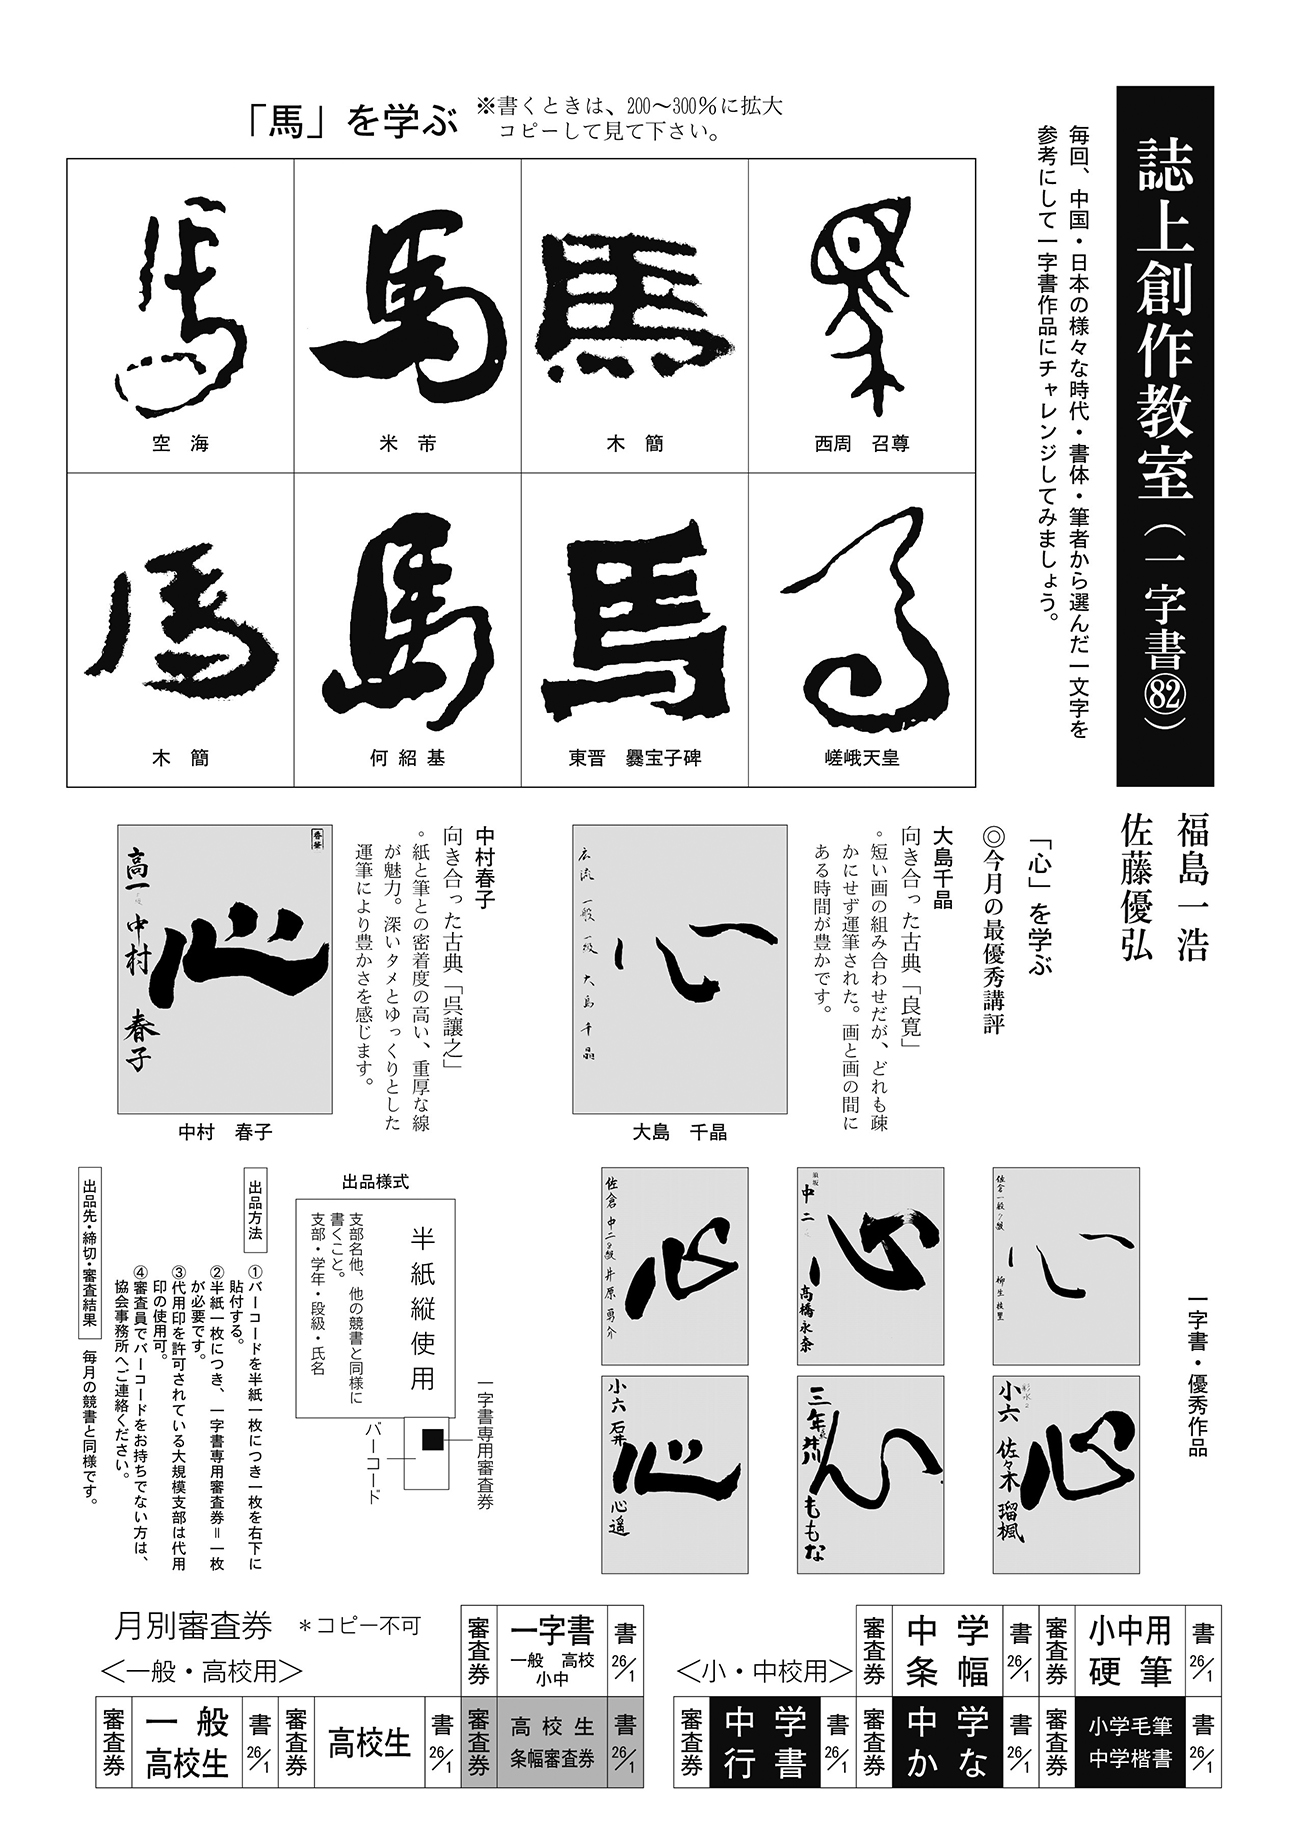 誌上創作教室（一字書㉒）
福島一浩
佐藤優弘
毎回、中国・日本の様々な時代・書体・筆者から選んだ一文字を
参考にして一字書作品にチャレンジしてみましょう。
「馬」を学ぶ
※書くときは、200～300％に拡大
コピーして見て下さい。
西周　召尊
木　簡
米　芾
空　海
嵯峨天皇
東晋　爨宝子碑
何紹基
木　簡
「心」を学ぶ
◎今月の最優秀講評
大島千晶
向き合った古典「良寛」
。短い画の組み合わせだが、どれも疎
かにせず運筆された。画と画の間に
ある時間が豊かです。
広流　一般　一級　大島千晶
心
大島　千晶
中村春子
向き合った古典「呉譲之」
。紙と筆との密着度の高い、重厚な線
が魅力。深いタメとゆっくりとした
運筆により豊かさを感じます。
春華
心
高一　中村　春子
中村　春子
一字書・優秀作品
心
佐倉一般 柳生
心
中二　高橋永奈
心
佐倉　中二 井原勇介
心
小六　佐々木瑠楓
心
三年　井川ももな
心
小六　石井心遥
出品様式
半紙縦使用
支部名他、他の競書と同様に
書くこと。
支部・学年・段級・氏名
一字書専用審査券
バーコード
出品方法
①バーコードを半紙一枚につき一枚を右下に
貼付する。
②半紙一枚につき、一字書専用審査券＝一枚
が必要です。
③代用印を許可されている大規模支部は代用
印の使用可。
④審査員でバーコードをお持ちでない方は、
協会事務所へご連絡ください。
出品先・締切・審査結果　毎月の競書と同様です。
月別審査券　＊コピー不可
＜一般・高校用＞
審査券　一字書　一般　高校　小中　書26/1
審査券　一般　高校生　書26/1
審査券　高校生　書26/1
審査券　高校生　条幅審査券　書26/1
＜小・中校用＞
審査券　中学条幅　書26/1
審査券　小中用硬筆　書26/1
審査券　中学行書　書26/1
審査券　中学かな　書26/1
審査券　小学毛筆　中学楷書　書26/1